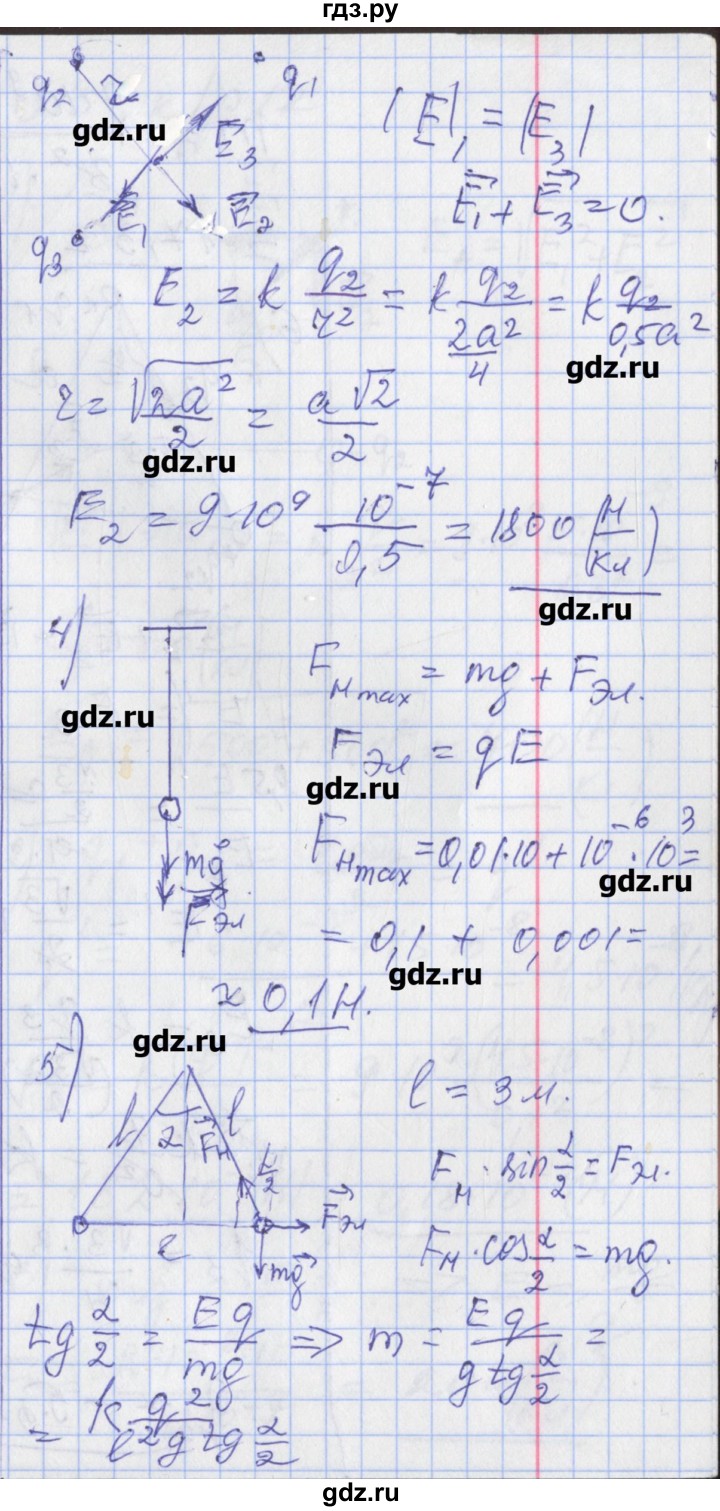 гдз.ру
q₂ r q₁
gdz.ru
E⃗₃
|E₁| = |E₃|
E⃗₁ + E⃗₃ = 0.
q₃ E⃗₁ E⃗₂
E₂ = k q₂/r² = k q₂/(2a²/4) = k q₂/0,5a²
gdz.ru
r = √(2a²)/2 = a√2/2
gdz.ru
E₂ = 9·10⁹ 10⁻⁷/0,5 = 1800 (Н/Кл)
gdz.ru
4)
Fнmax = mg + Fэл.
gdz.ru
Fэл = qE
gdz.ru
Fнmax = 0,01·10 + 10⁻⁶·10³ =
gdz.ru
mg⃗
F⃗эл
= 0,1 + 0,001 =
gdz.ru
≈ 0,1 Н.
gdz.ru
5)
l = 3 м.
l α Fн l
α/2
Fн · sin α/2 = Fэл.
F⃗эл
r
mg⃗
Fн · cos α/2 = mg.
tg α/2 = Eq/mg => m = Eq/(g tg α/2) =
= k q²/(l² g tg α/2)
gdz.ru